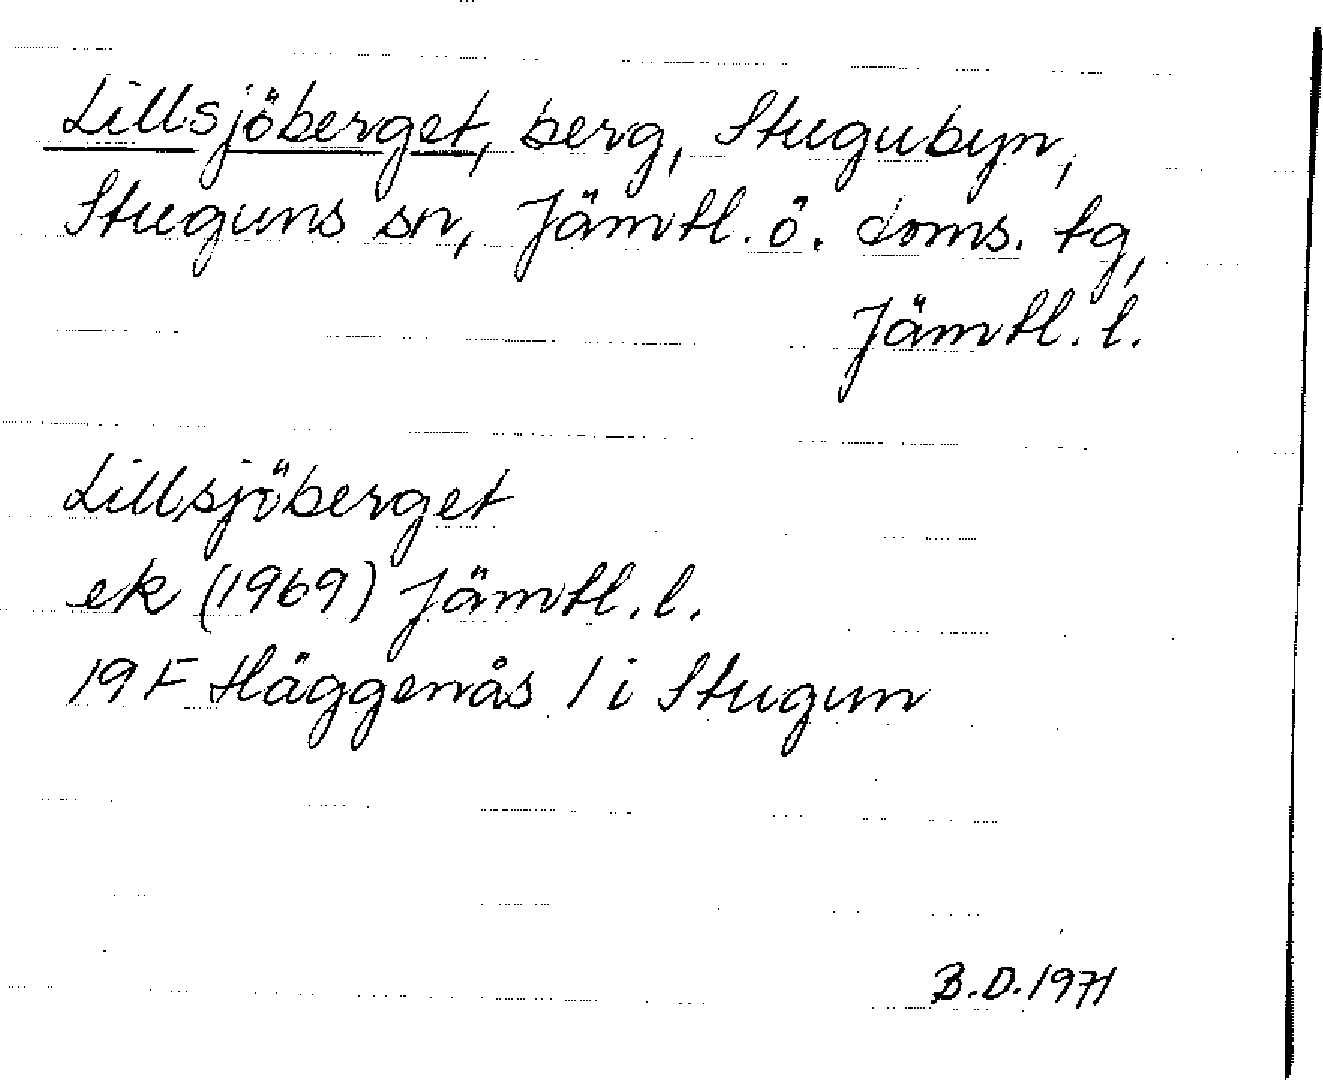 Lillsjöberget, berg, Stugubyn,
Stuguns sn, Jämtl. ö. doms. tg,
Jämtl. l.
Lillsjöberget
ek (1969) Jämtl. l.
19 F Häggenås / i Stugun
B.D. 1971